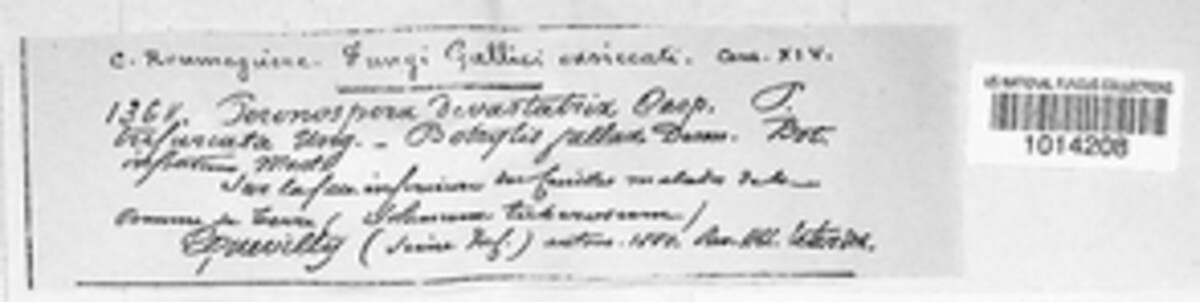 C. Roumeguère. Fungi Gallici exsiccati. Cent. XIV.
1361. Peronospora devastatrix Casp. P.
trifurcata Ung. - Botrytis fallax Desm. Bot.
Mont
Sur la face inférieure des feuilles malades de la
pomme de terre (Solanum tuberosum)
(Seine Inf.) autom. 1880. Letendre.
US NATIONAL FUNGUS COLLECTIONS
1014208